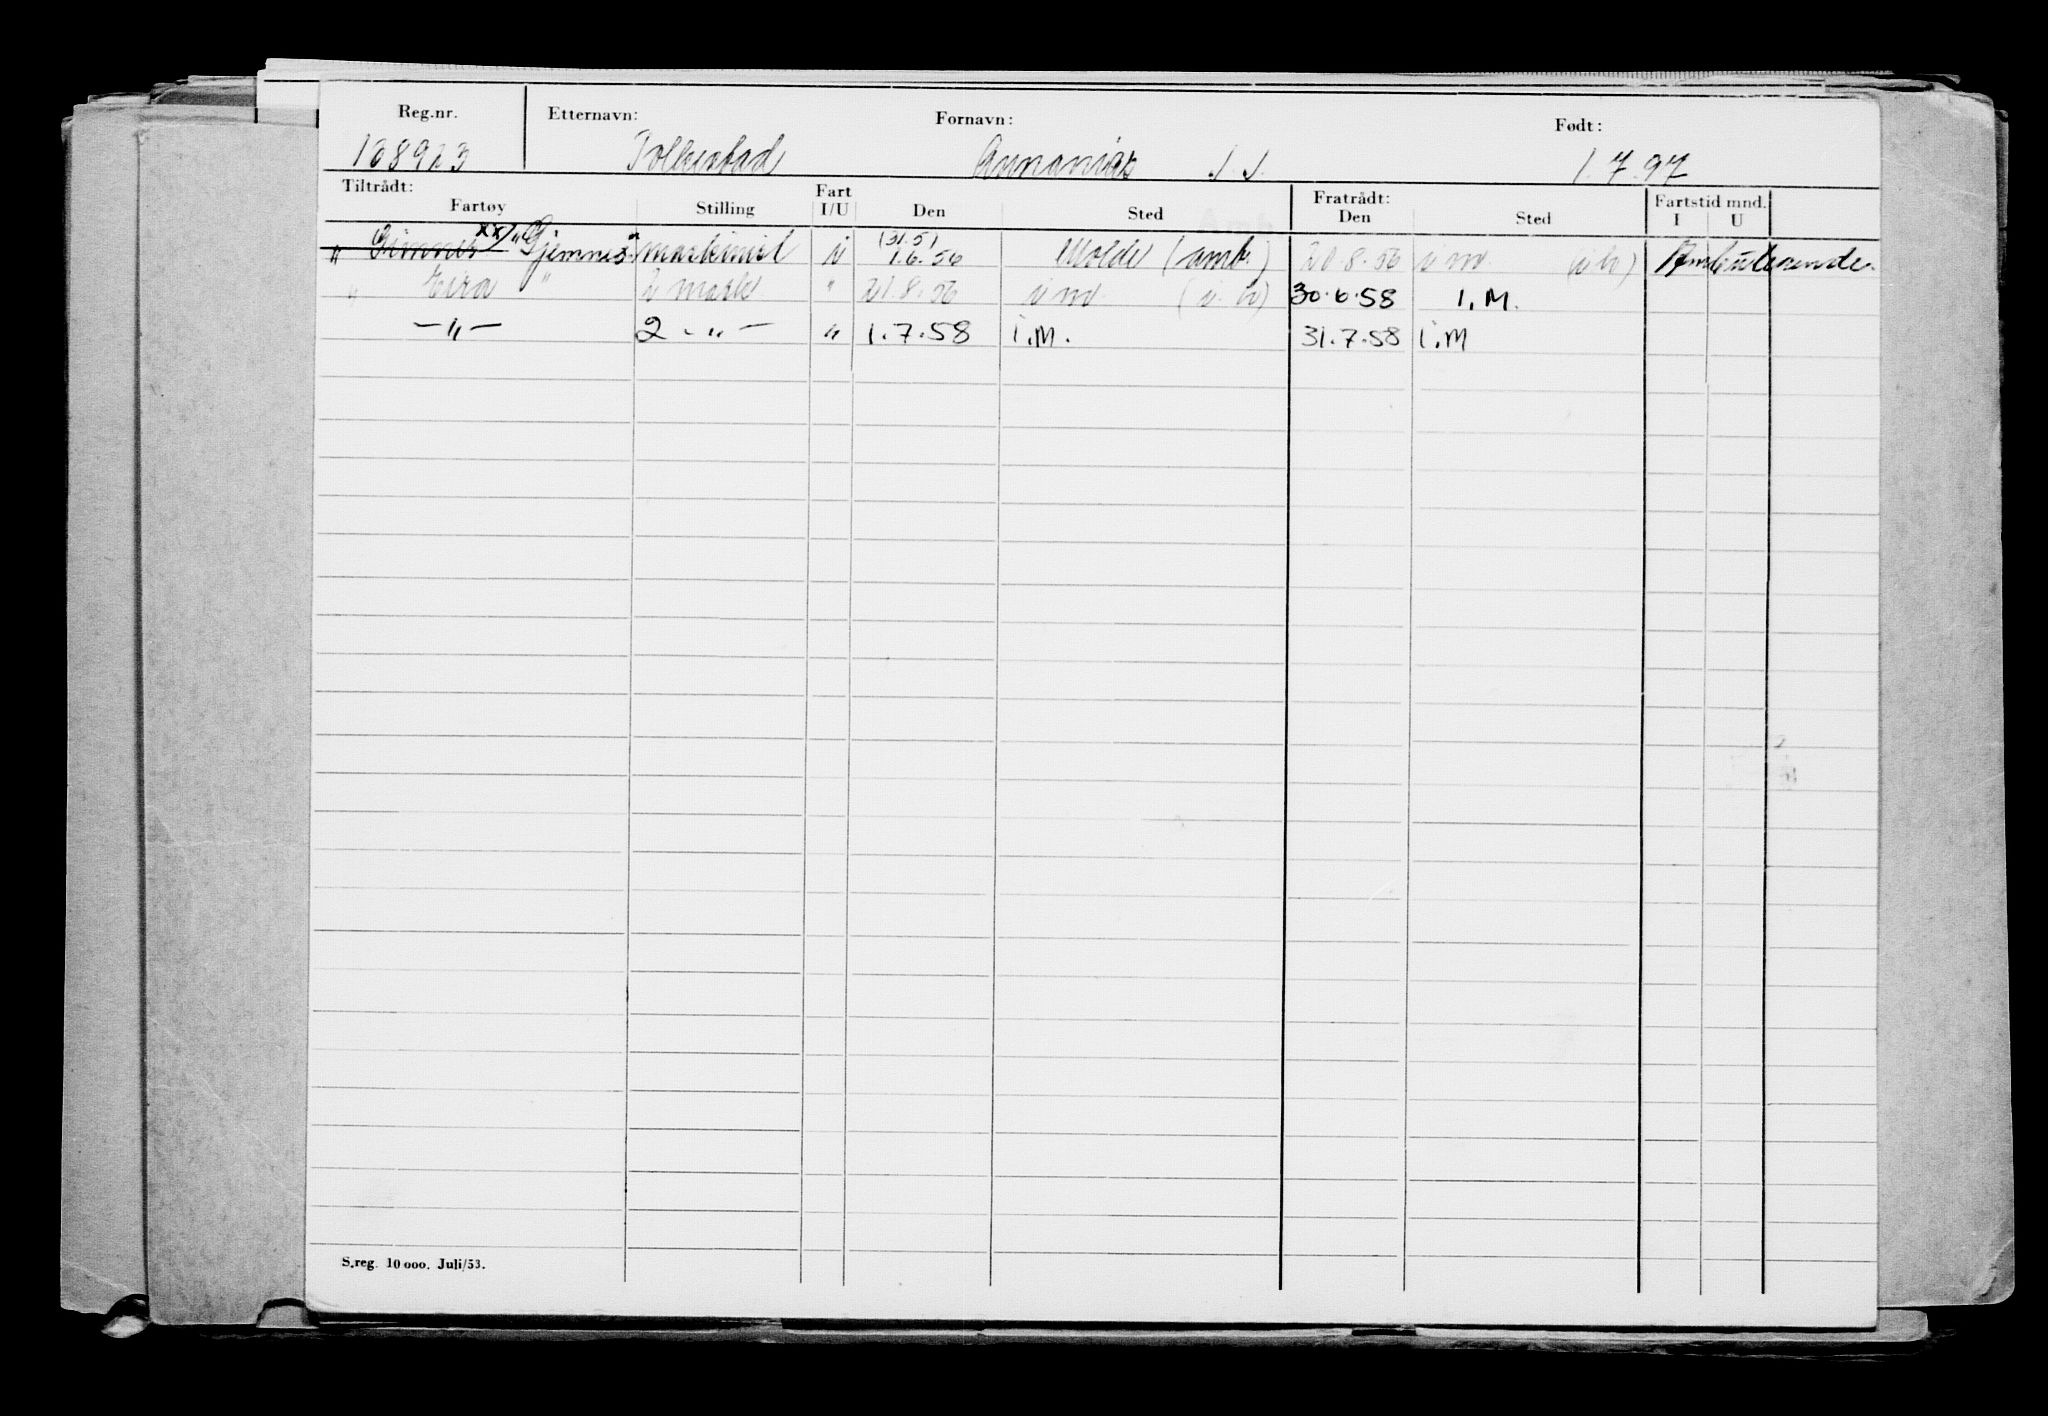 Reg.nr. Etternavn: Fornavn: Født:
108923 Folkestad Annanias J. J. 1.7.97
Tiltrådt: Fartøy Stilling Fart I/U Den Sted Fratrådt: Den Sted Fartstid mnd. I U
(31.5)
" Gimnes xx) "Gjemnes" maskinist i 1.6.56 Molde (amb.) 21.8.56 i m. (i b) Ambulerende.
" Eira " 2 mask. " 21.8.56 i m. (i. b) 30.6.58 I.M.
—"— 2 -"- " 1.7.58 i.M. 31.7.58 i.M
S.reg. 10 000. Juli/53.